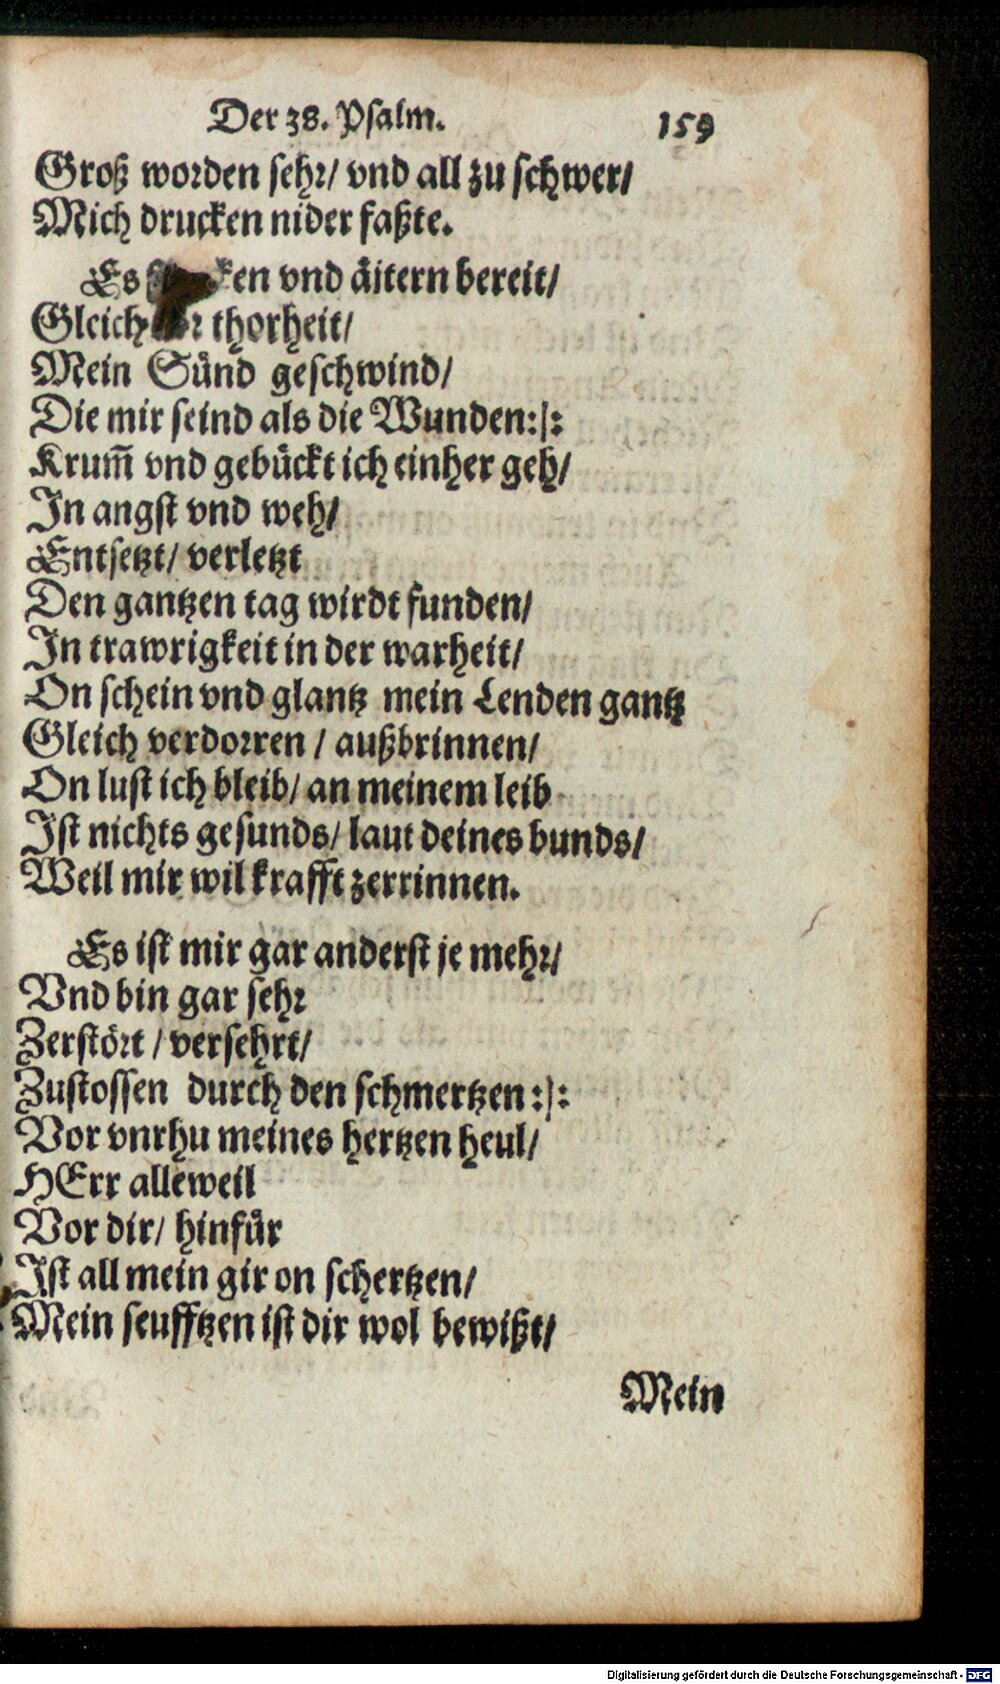 Der 38. Psalm. 159
Groß worden sehr/ vnd all zu schwer/
Mich drucken nider faßte.
Es vnd äitern bereit/
Gleich thorheit/
Mein Sünd geschwind/
Die mir seind als die Wunden:/:
Krum̃ vnd gebückt ich einher geh/
In angst vnd weh/
Entsetzt/ verletzt
Den gantzen tag wirdt funden/
In trawrigkeit in der warheit/
On schein vnd glantz mein Lenden gantz
Gleich verdorren / außbrinnen/
On lust ich bleib/ an meinem leib
Ist nichts gesunds/ laut deines bunds/
Weil mir wil krafft zerrinnen.
Es ist mir gar anderst je mehr/
Vnd bin gar sehr
Zerstört / versehrt/
Zustossen durch den schmertzen:/:
Vor vnrhu meines hertzen heul/
HErr alleweil
Vor dir/ hinfür
Ist all mein gir on schertzen/
Mein seufftzen ist dir wol bewißt/
Mein
Digitalisierung gefördert durch die Deutsche Forschungsgemeinschaft - DFG